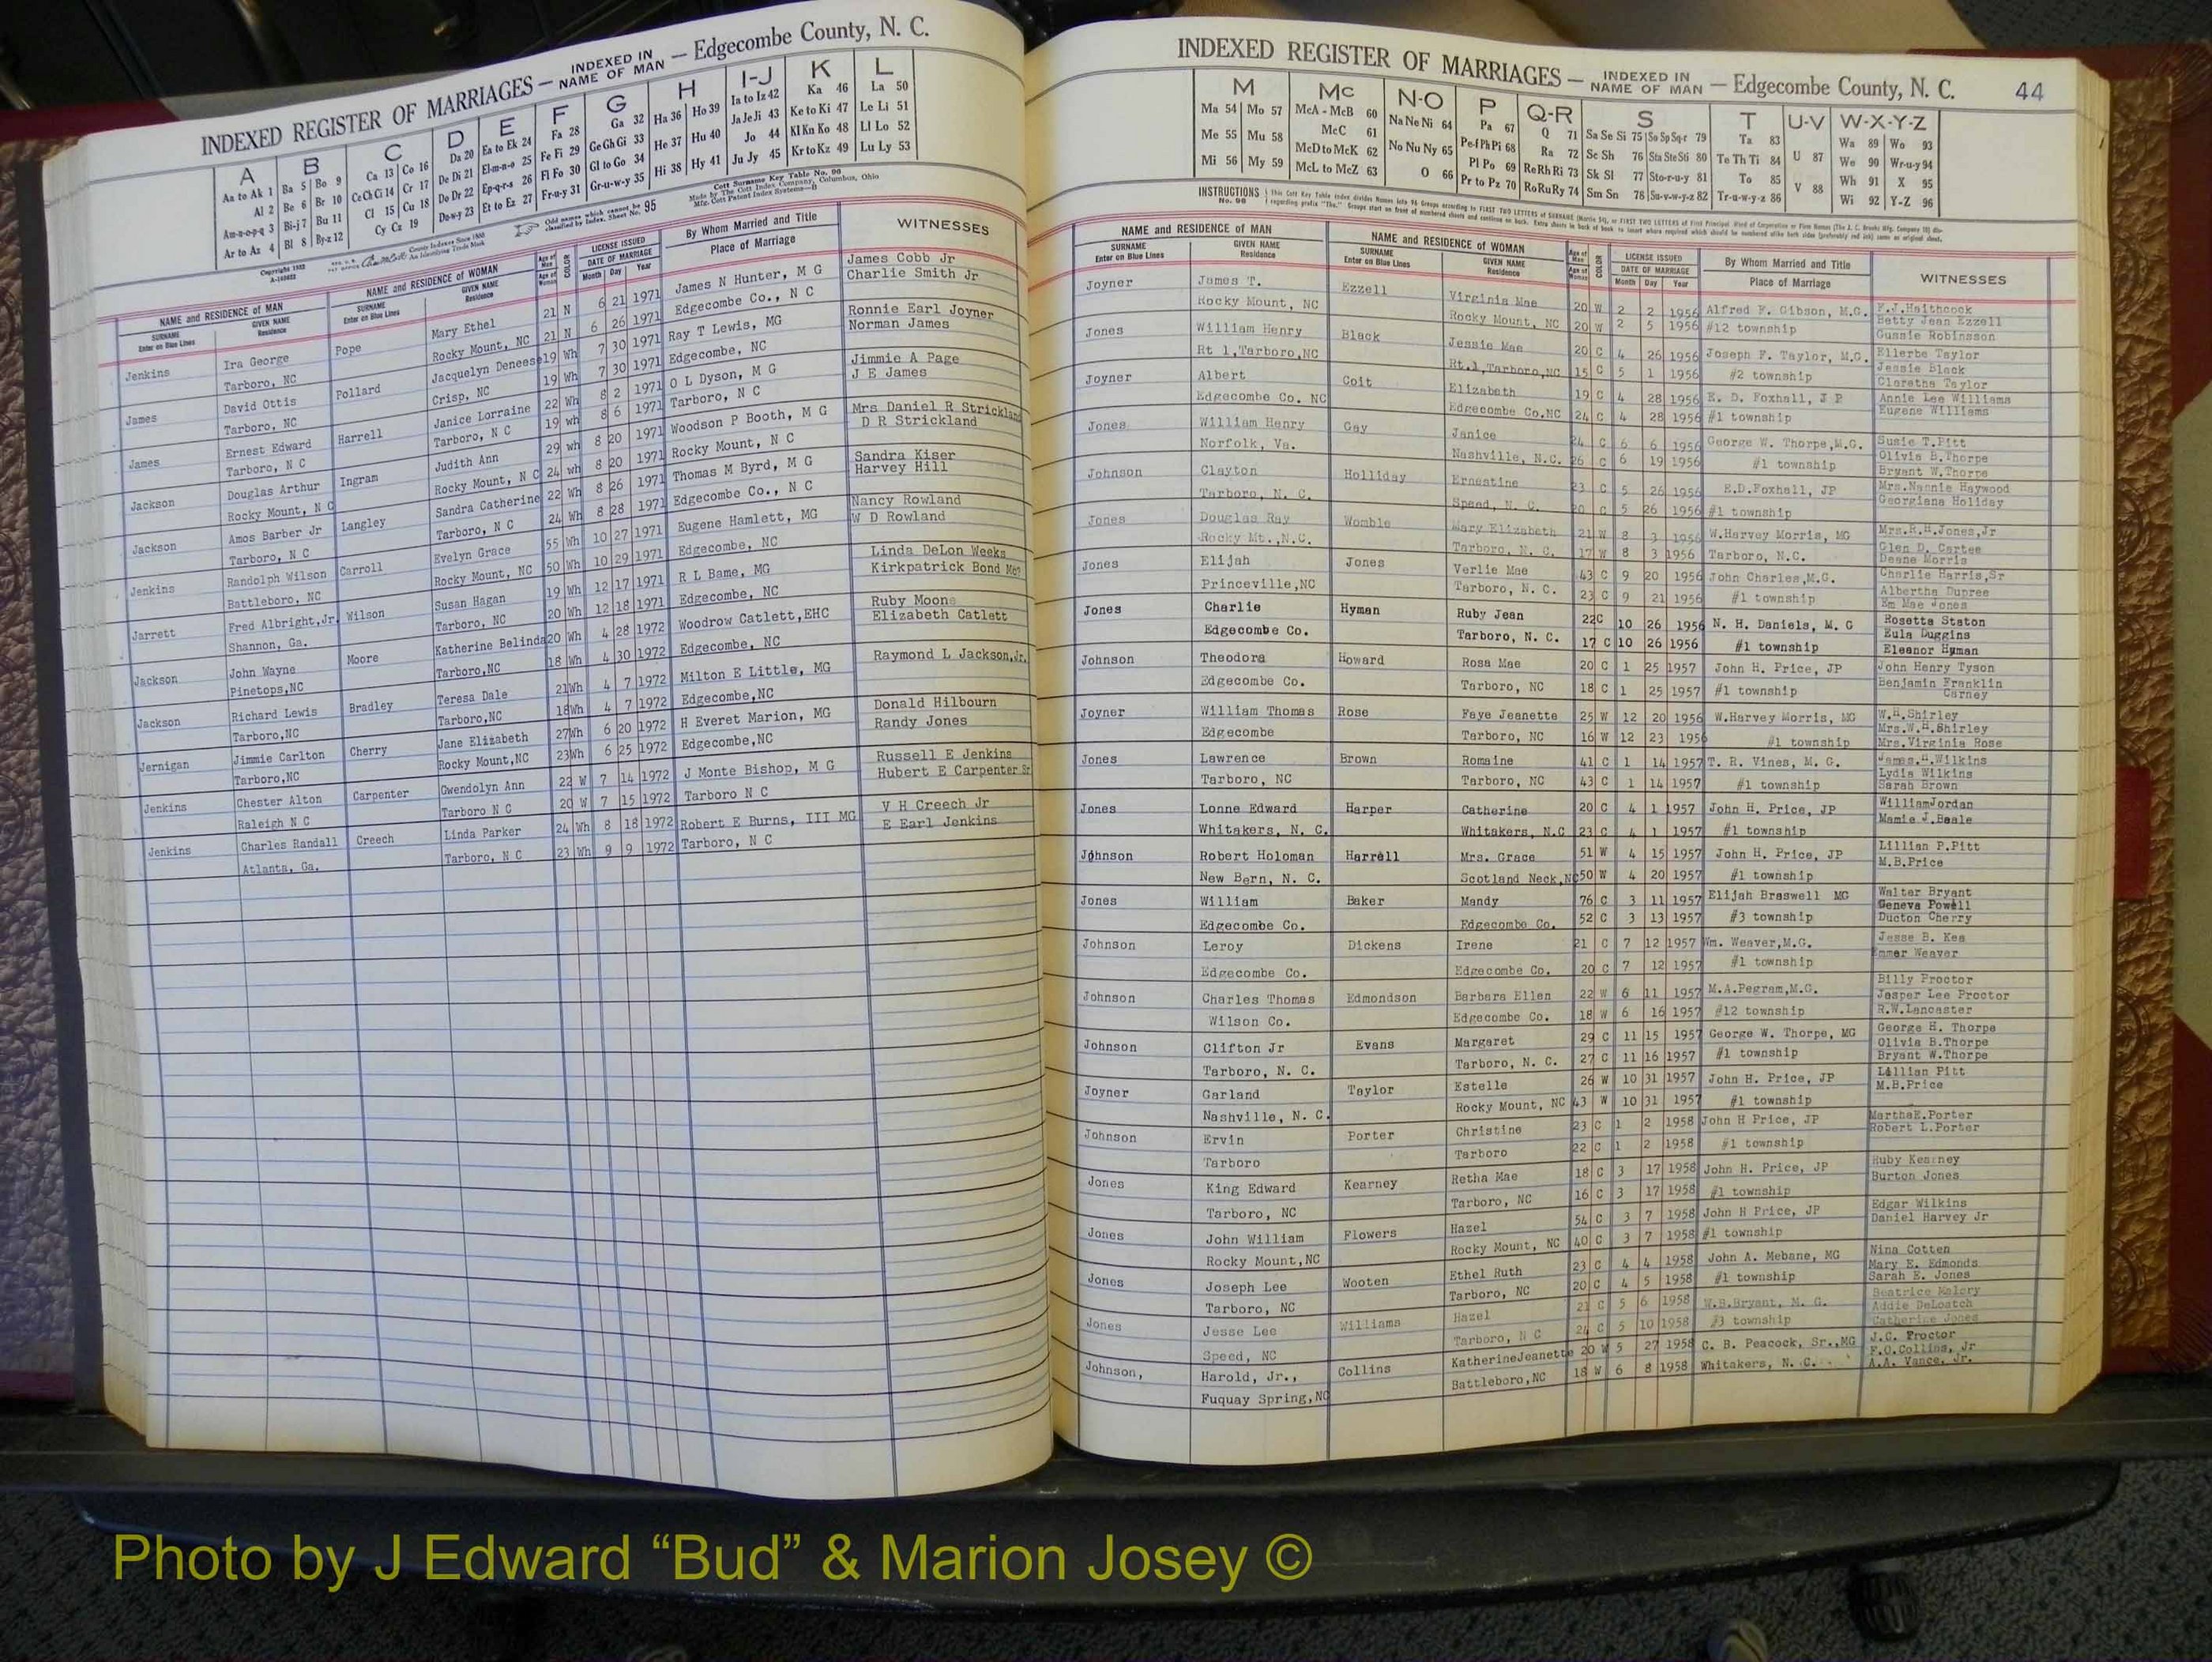 INDEXED REGISTER OF MARRIAGES — INDEXED IN NAME OF MAN — Edgecombe County, N. C.
A
Aa to Ak 1
Al 2
Am-n-o-p-q 3
Ar to Az 4
B
Ba 5 Bo 9
Be 6 Br 10
Bi-j 7 Bu 11
Bl 8 By-z 12
C
Ca 13 Co 16
Ce Ch Ci 14 Cr 17
Cl 15 Cu 18
Cy Cz 19
D
Da 20
De Di 21
Do Dr 22
Du-w-y 23
E
Ea to Ek 24
El-m-n-o 25
Ep-q-r-s 26
Et to Ez 27
F
Fa 28
Fe Fi 29
Fl Fo 30
Fr-u-y 31
G
Ga 32
Ge Gh Gi 33
Gl to Go 34
Gr-u-w-y 35
H
Ha 36 Ho 39
He 37 Hu 40
Hi 38 Hy 41
I-J
Ia to Iz 42
Ja Je Ji 43
Jo 44
Ju Jy 45
K
Ka 46
Ke to Ki 47
Kl Kn Ko 48
Kr to Kz 49
L
La 50
Le Li 51
Ll Lo 52
Lu Ly 53
Cott Surname Key Table No. 96
Made by The Cott Index Company, Columbus, Ohio
Mfg. Cott Patent Index Systems—B
Odd names which cannot be classified by Index. Sheet No. 95
County Indexes Since 1888
An Identifying Trade Mark
NAME and RESIDENCE of MAN
SURNAME Enter on Blue Lines
GIVEN NAME Residence
NAME and RESIDENCE of WOMAN
SURNAME Enter on Blue Lines
GIVEN NAME Residence
Age of Man
Age of Woman
COLOR
LICENSE ISSUED
DATE OF MARRIAGE
Month Day Year
By Whom Married and Title
Place of Marriage
WITNESSES
Jenkins Ira George Pope Mary Ethel 21 N 6 21 1971 James N Hunter, M G James Cobb Jr
Tarboro, NC Rocky Mount, NC 21 N 6 26 1971 Edgecombe Co., N C Charlie Smith Jr
James David Ottis Pollard Jacquelyn Denese 19 Wh 7 30 1971 Ray T Lewis, MG Ronnie Earl Joyner
Tarboro, NC Crisp, NC 19 Wh 7 30 1971 Edgecombe, NC Norman James
James Ernest Edward Harrell Janice Lorraine 22 Wh 8 2 1971 O L Dyson, M G Jimmie A Page
Tarboro, N C Tarboro, N C 19 wh 8 6 1971 Tarboro, N C J E James
Jackson Douglas Arthur Ingram Judith Ann 29 wh 8 20 1971 Woodson P Booth, M G Mrs Daniel R Strickland
Rocky Mount, N C Rocky Mount, N C 24 wh 8 20 1971 Rocky Mount, N C D R Strickland
Jackson Amos Barber Jr Langley Sandra Catherine 22 Wh 8 26 1971 Thomas M Byrd, M G Sandra Kiser
Tarboro, N C Tarboro, N C 24 Wh 8 28 1971 Edgecombe Co., N C Harvey Hill
Jenkins Randolph Wilson Carroll Evelyn Grace 55 Wh 10 27 1971 Eugene Hamlett, MG Nancy Rowland
Battleboro, NC Rocky Mount, NC 50 Wh 10 29 1971 Edgecombe, NC W D Rowland
Jarrett Fred Albright,Jr. Wilson Susan Hagan 19 Wh 12 17 1971 R L Bame, MG Linda DeLon Weeks
Shannon, Ga. Tarboro, NC 20 Wh 12 18 1971 Edgecombe, NC Kirkpatrick Bond
Jackson John Wayne Moore Katherine Belinda 20 Wh 4 28 1972 Woodrow Catlett,EHC Ruby Moone
Pinetops,NC Tarboro,NC 18 Wh 4 30 1972 Edgecombe, NC Elizabeth Catlett
Jackson Richard Lewis Bradley Teresa Dale 21Wh 4 7 1972 Milton E Little, MG Raymond L Jackson,Jr.
Tarboro,NC Tarboro,NC 18Wh 4 7 1972 Edgecombe,NC
Jernigan Jimmie Carlton Cherry Jane Elizabeth 27Wh 6 20 1972 H Everet Marion, MG Donald Hilbourn
Tarboro,NC Rocky Mount,NC 23Wh 6 25 1972 Edgecombe,NC Randy Jones
Jenkins Chester Alton Carpenter Gwendolyn Ann 22 W 7 14 1972 J Monte Bishop, M G Russell E Jenkins
Raleigh N C Tarboro N C 20 W 7 15 1972 Tarboro N C Hubert E Carpenter Sr
Jenkins Charles Randall Creech Linda Parker 24 Wh 8 18 1972 Robert E Burns, III MG V H Creech Jr
Atlanta, Ga. Tarboro, N C 23 Wh 9 9 1972 Tarboro, N C E Earl Jenkins
INDEXED REGISTER OF MARRIAGES — INDEXED IN NAME OF MAN — Edgecombe County, N. C. 44
M
Ma 54 Mo 57
Me 55 Mu 58
Mi 56 My 59
Mc
McA - McB 60
McC 61
McD to McK 62
McL to McZ 63
N-O
Na Ne Ni 64
No Nu Ny 65
O 66
P
Pa 67
Pe-f Ph Pi 68
Pl Po 69
Pr to Pz 70
Q-R
Q 71
Ra 72
Re Rh Ri 73
Ro Ru Ry 74
S
Sa Se Si 75 So Sp Sq-r 79
Sc Sh 76 Sta Ste Sti 80
Sk Sl 77 Sto-r-u-y 81
Sm Sn 78 Su-v-w-y-z 82
T
Ta 83
Te Th Ti 84
To 85
Tr-u-w-y-z 86
U-V
U 87
V 88
W-X-Y-Z
Wa 89 Wo 93
We 90 Wr-u-y 94
Wh 91 X 95
Wi 92 Y-Z 96
INSTRUCTIONS No. 96
NAME and RESIDENCE OF MAN
SURNAME Enter on Blue Lines
GIVEN NAME Residence
NAME and RESIDENCE OF WOMAN
SURNAME Enter on Blue Lines
GIVEN NAME Residence
Age of Man
Age of Woman
COLOR
LICENSE ISSUED
DATE OF MARRIAGE
Month Day Year
By Whom Married and Title
Place of Marriage
WITNESSES
Joyner James T. Ezzell Virginia Mae 20 W 2 2 1956 Alfred F. Gibson, M.G. F.J.Haithcock
Rocky Mount, NC Rocky Mount, NC 20 W 2 5 1956 #12 township Betty Jean Ezzell
Gussie Robinsson
Jones William Henry Black Jessie Mae 20 C 4 26 1956 Joseph F. Taylor, M.G. Ellerbe Taylor
Rt 1,Tarboro,NC Rt.1,Tarboro,NC 15 C 5 1 1956 #2 township Jessie Black
Claretha Taylor
Joyner Albert Coit Elizabeth 19 C 4 28 1956 E. D. Foxhall, J P Annie Lee Williams
Edgecombe Co. NC Edgecombe Co.NC 24 C 4 28 1956 #1 township Eugene Williams
Jones William Henry Gay Janice 24 C 6 6 1956 George W. Thorpe,M.G. Susie T.Pitt
Norfolk, Va. Nashville, N.C. 26 C 6 19 1956 #1 township Olivia B.Thorpe
Bryant W.Thorpe
Johnson Clayton Holliday Ernestine 23 C 5 26 1956 E.D.Foxhall, JP Mrs.Nannie Haywood
Tarboro, N. C. Speed, N. C. 20 C 5 26 1956 #1 township Georgiana Holiday
Jones Douglas Ray Womble Mary Elizabeth 21 W 8 3 1956 W.Harvey Morris, MG Mrs.R.H.Jones,Jr
Rocky Mt.,N.C. Tarboro, N. C. 17 W 8 3 1956 Tarboro, N.C. Glen D. Cartee
Deane Morris
Jones Elijah Jones Verlie Mae 43 C 9 20 1956 John Charles,M.G. Charlie Harris,Sr
Princeville,NC Tarboro, N. C. 23 C 9 21 1956 #1 township Albertha Dupree
Em Mae Jones
Jones Charlie Hyman Ruby Jean 22C 10 26 1956 N. H. Daniels, M. G Rosetta Staton
Edgecombe Co. Tarboro, N. C. 17 C 10 26 1956 #1 township Eula Duggins
Eleanor Hyman
Johnson Theodora Howard Rosa Mae 20 C 1 25 1957 John H. Price, JP John Henry Tyson
Edgecombe Co. Tarboro, NC 18 C 1 25 1957 #1 township Benjamin Franklin
Carney
Joyner William Thomas Rose Faye Jeanette 25 W 12 20 1956 W.Harvey Morris, MG W.H.Shirley
Edgecombe Tarboro, NC 16 W 12 23 1956 #1 township Mrs.W.H.Shirley
Mrs.Virginia Rose
Jones Lawrence Brown Romaine 41 C 1 14 1957 T. R. Vines, M. G. James.H.Wilkins
Tarboro, NC Tarboro, NC 43 C 1 14 1957 #1 township Lydia Wilkins
Sarah Brown
Jones Lonne Edward Harper Catherine 20 C 4 1 1957 John H. Price, JP WilliamJordan
Whitakers, N. C. Whitakers, N.C 23 C 4 1 1957 #1 township Mamie J.Beale
Johnson Robert Holoman Harrell Mrs. Grace 51 W 4 15 1957 John H. Price, JP Lillian P.Pitt
New Bern, N. C. Scotland Neck,NC 50 W 4 20 1957 #1 township M.B.Price
Jones William Baker Mandy 76 C 3 11 1957 Elijah Braswell MG Walter Bryant
Edgecombe Co. Edgecombe Co. 52 C 3 13 1957 #3 township Geneva Powell
Ducton Cherry
Johnson Leroy Dickens Irene 21 C 7 12 1957 Wm. Weaver,M.G. Jesse B. Kea
Edgecombe Co. Edgecombe Co. 20 C 7 12 1957 #1 township Emmer Weaver
Johnson Charles Thomas Edmondson Barbara Ellen 22 W 6 11 1957 M.A.Pegram,M.G. Billy Proctor
Wilson Co. Edgecombe Co. 18 W 6 16 1957 #12 township Jasper Lee Proctor
R.W.Lancaster
Johnson Clifton Jr Evans Margaret 29 C 11 15 1957 George W. Thorpe, MG George H. Thorpe
Tarboro, N. C. Tarboro, N. C. 27 C 11 16 1957 #1 township Olivia B.Thorpe
Bryant W.Thorpe
Joyner Garland Taylor Estelle 26 W 10 31 1957 John H. Price, JP Lillian Pitt
Nashville, N. C. Rocky Mount, NC 43 W 10 31 1957 #1 township M.B.Price
Johnson Ervin Porter Christine 23 C 1 2 1958 John H Price, JP MarthaE.Porter
Tarboro Tarboro 22 C 1 2 1958 #1 township Robert L.Porter
Jones King Edward Kearney Retha Mae 18 C 3 17 1958 John H. Price, JP Ruby Kearney
Tarboro, NC Tarboro, NC 16 C 3 17 1958 #1 township Burton Jones
Jones John William Flowers Hazel 54 C 3 7 1958 John H Price, JP Edgar Wilkins
Rocky Mount,NC Rocky Mount, NC 40 C 3 7 1958 #1 township Daniel Harvey Jr
Jones Joseph Lee Wooten Ethel Ruth 23 C 4 4 1958 John A. Mebane, MG Nina Cotten
Tarboro, NC Tarboro, NC 20 C 4 5 1958 #1 township Mary E. Edmonds
Sarah E. Jones
Jones Jesse Lee Williams Hazel 21 C 5 6 1958 W.B.Bryant, M. G. Beatrice Malory
Speed, NC Tarboro, N C 24 C 5 10 1958 #3 township Addie DeLoatch
Catherine Jones
Johnson, Harold, Jr., Collins KatherineJeanette 20 W 5 27 1958 C. B. Peacock, Sr.,MG J.C. Proctor
Fuquay Spring,NC Battleboro,NC 18 W 6 8 1958 Whitakers, N. C. F.O.Collins, Jr
A.A. Vance, Jr.
Photo by J Edward “Bud” & Marion Josey ©